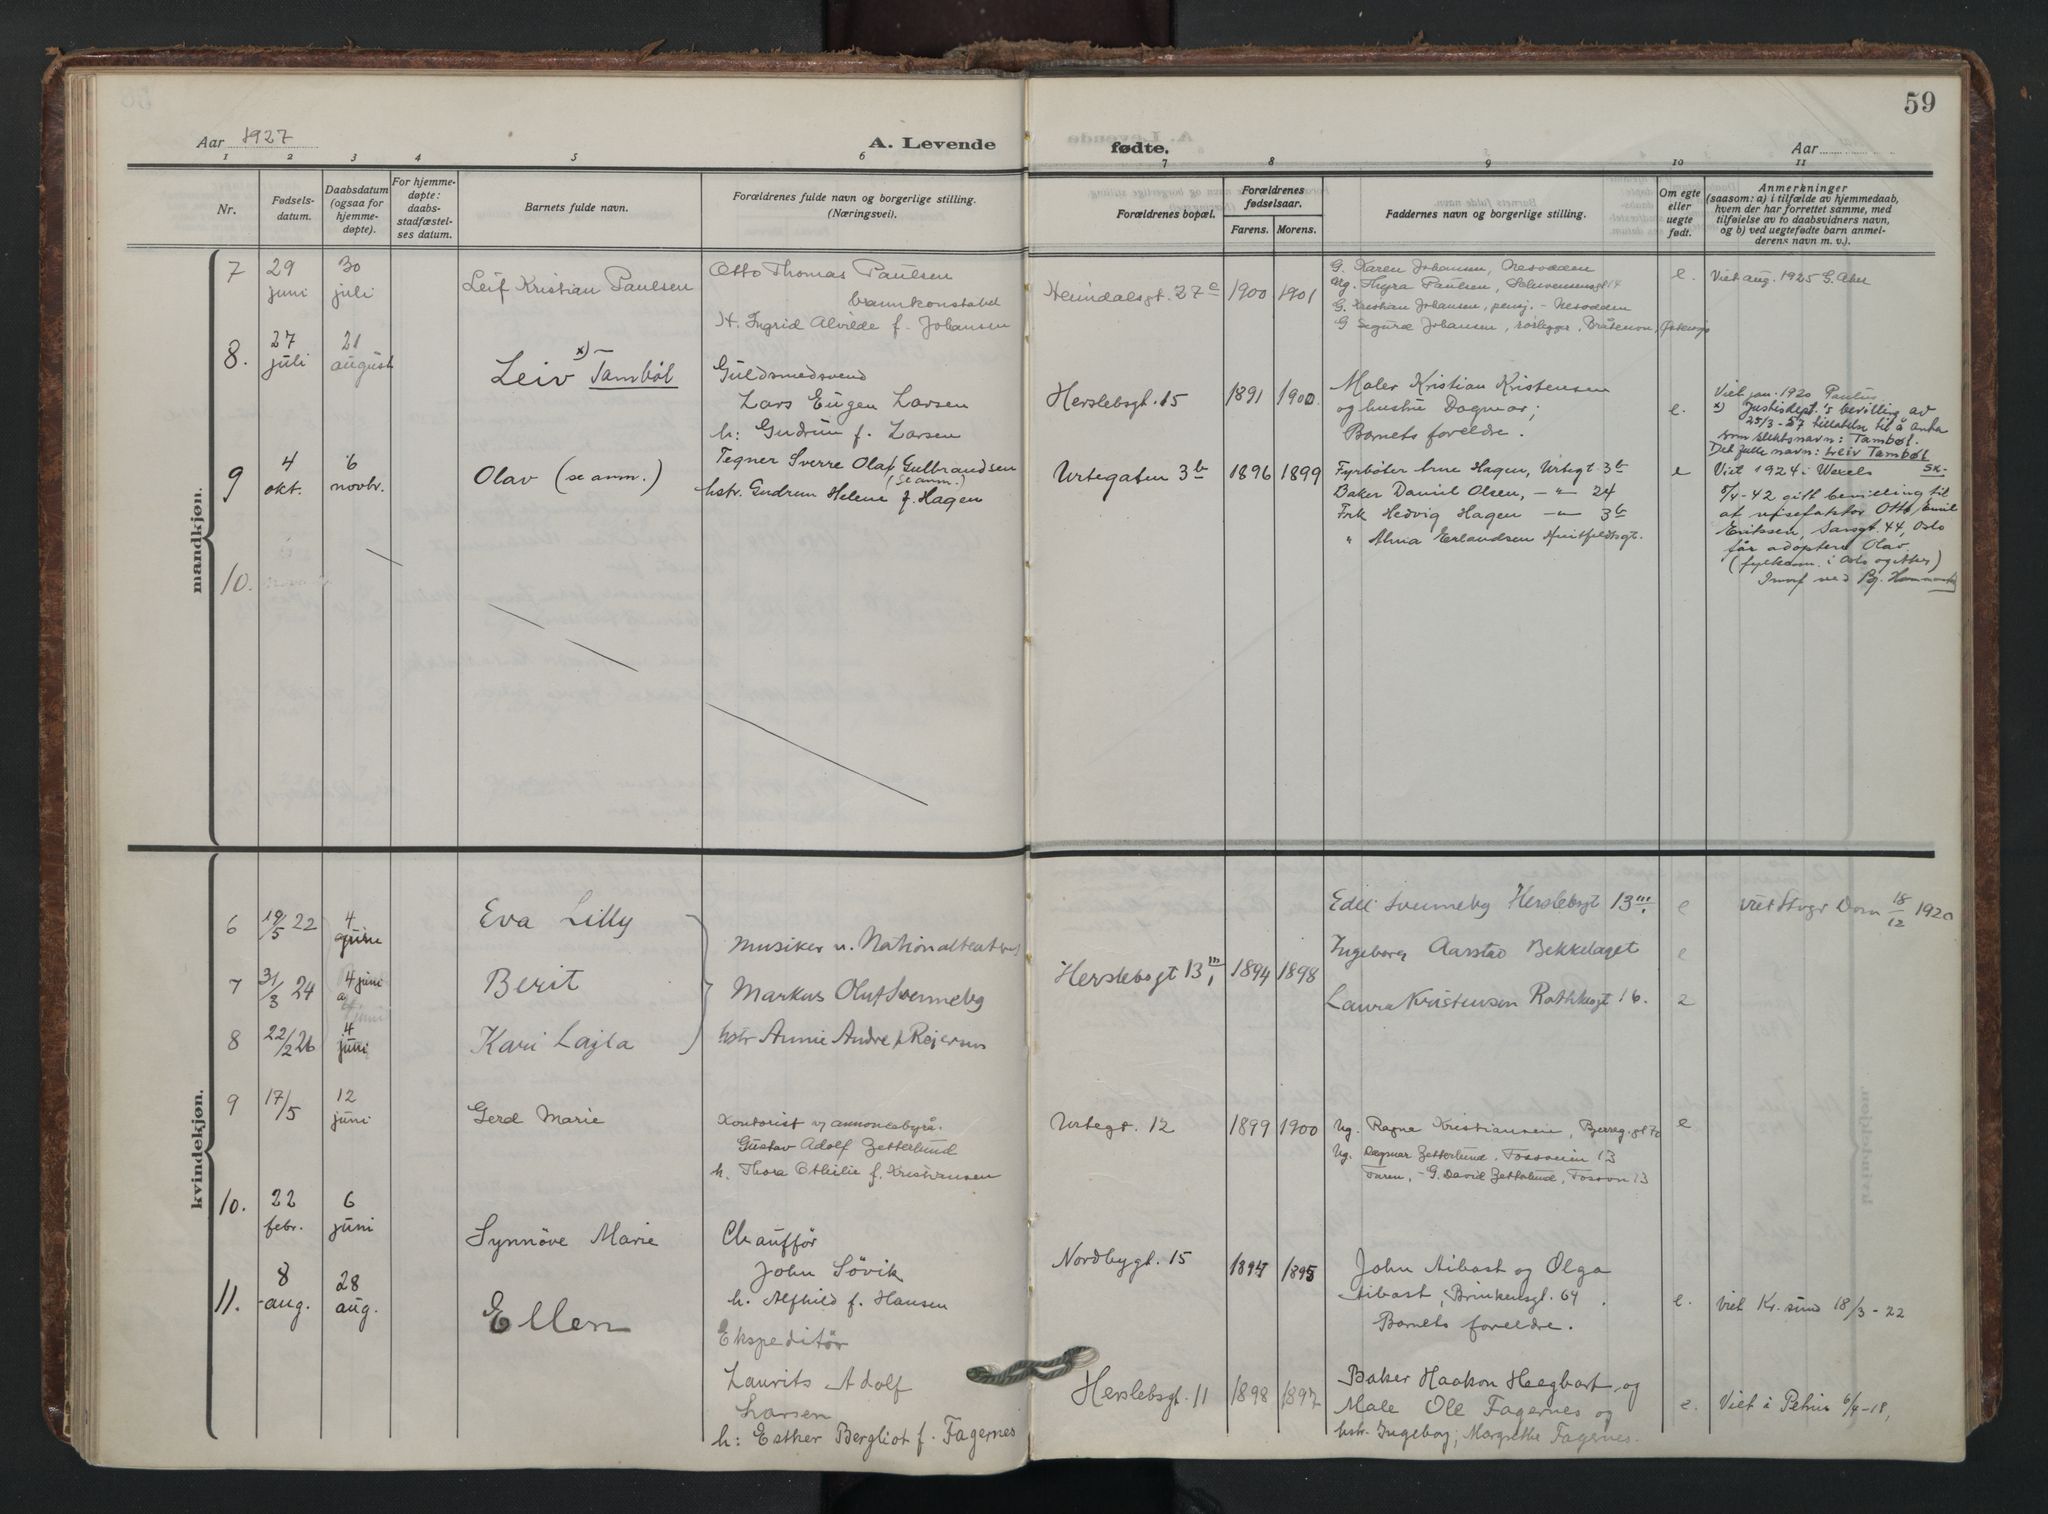 59
Aar 1927
A. Levende
fødte.
Aar
1 2 3 4 5 6 7 8 9 10 11
Nr.
Fødsels-
datum.
Daabsdatum
(ogsaa for
hjemme-
døpte).
For hjemme-
døpte:
daabs-
stadfæstel-
ses datum.
Barnets fulde navn.
Forældrenes fulde navn og borgerlige stilling.
(Næringsvei).
Forældrenes bopæl.
Forældrenes
fødselsaar.
Farens. Morens.
Faddernes navn og borgerlige stilling.
Om egte
eller
uegte
født.
Anmerkninger
(saasom: a) i tilfælde av hjemmedaab,
hvem der har forrettet samme, med
tilføielse av to daabsvidners navn,
og b) ved uegtefødte barn anmel-
derens navn m. v.).
mandkjøn.
7
29
juni
30
juli
Leif Kristian Paulsen
Otto Thomas Paulsen
brannkonstabel
H. Ingrid Alvilde f. Johansen
Heimdalsgt. 27c
1900 1901
G. Karen Johansen, Nesodden
Ug. Thyra Paulsen,
G. Kristian Johansen, pensj. - Nesodden
G Sigurd Johansen, rørlegger,
e.
Viet aug. 1925 G. Aker
8.
27
juli
21
august
Leiv x) Tambøl
Guldsmedsvend
Lars Eugen Larsen
h: Gudrun f. Larsen
Herslebsgt. 15
1891 1900
Maler Kristian Kristensen
og hustru Dagmar;
Barnets foreldre.
e.
Viet jan. 1920 Paulus
x) Justisdept.'s bevilling av
25/3-57 tillatelse til å anta
som slektsnavn: Tambøl.
Det fulle navn: Leiv Tambøl
SK.
9
4
okt.
6
novbr.
Olav (se anm.)
Tegner Sverre Olaf Gulbrandsen
(se anm.)
hstr. Gudrun Helene f. Hagen
Urtegaten 3b
1896 1899
Fyrbøter Arne Hagen, Urtegt 3b
Baker Daniel Olsen, - " - 24
Frk Hedvig Hagen - " - 3b
" Alma Erlandsen Huitfeldtsgt.
e
Viet 1924 i Wexels
5/4-42 gitt bevilling til
at reisefaktor Otto Emil
Eriksen, Sarsgt 44, Oslo
får adoptere Olav
(fylkesm. i Oslo og Aker)
Innf ved Bj.
10.
kvindekjøn.
6
19/5 22
4
juni
Eva Lilly
7
31/3 24
4 juni
Berit
8
22/2 26
4
juni
Kari Lajla
musiker v. Nationalteatret
Markus Oluf Svenneby
hstr Annie Andre f. Rejersen
Herslebsgt 13 III
1894 1898
Edel Svenneby Herslebsgt 13 III.
Ingeborg Aarstad Bekkelaget
Laura Kristensen Rathkesgt 16.
e
e
e
viet Dom 18/12 1920
9
17/5
12
juni
Gerd Marie
Kontorist v/ annoncebyrå.
Gustav Adolf Zetterlund
h. Thora Othilie f. Kristiansen
Urtegt. 12
1899 1900
Ug. Ragna Kristiansen,
Ug. Dagmar Zetterlund, Fossveien 13
Faren, - G. David Zetterlund, Fossvn 13
e
10.
22
febr.
6
juni
Synnöve Marie
Chaufför
John Sövik
h. Alfhild f. Hansen
Nordbygt. 15
1894 1895
John Aibast og Olga
Aibast, Brinkensgt. 64.
Barnets foreldre.
e.
Viet Kr. sund 18/3-22
11.
8
aug.
28
aug.
Ellen
Ekspeditör
Laurits Adolf
Larsen
h: Esther Bergliot f. Fagernes
Herslebsgt. 11
1898 1897
Baker Haakon Hegbart og
Male Ole Fagernes og
hstr. Ingeborg; Margrethe Fagernes.
e.
Viet i Petrus 6/4-18,